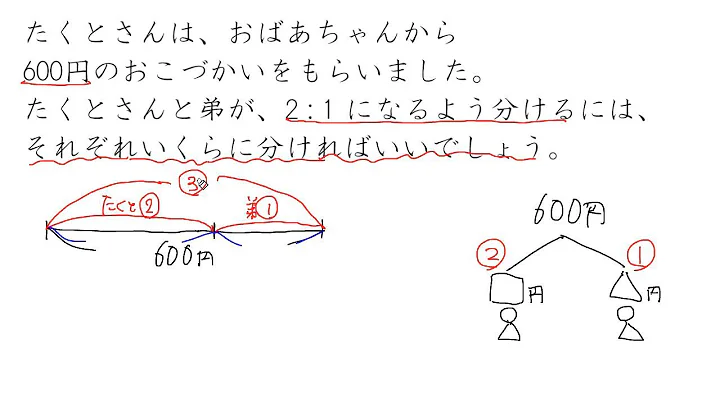 たくとさんは、おばあちゃんから
600円のおこづかいをもらいました。
たくとさんと弟が、2:1になるよう分けるには、
それぞれいくらに分ければいいでしょう。
③
たくと② 弟①
600円
600円
② ①
円 円